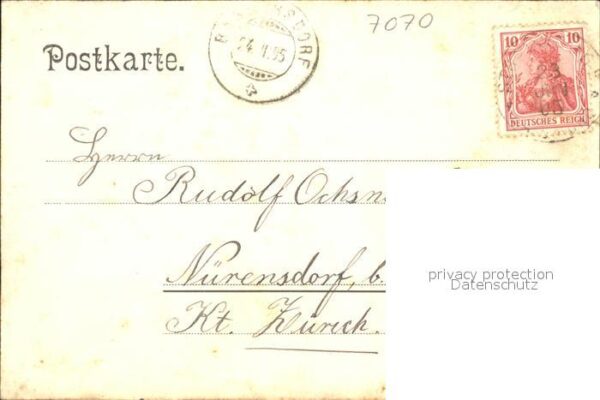 7070
Postkarte.
24. V. 05
10 10
DEUTSCHES REICH
Herrn
Rudolf Ochsn
Nürensdorf, b.
Kt. Zürich.
privacy protection
Datenschutz